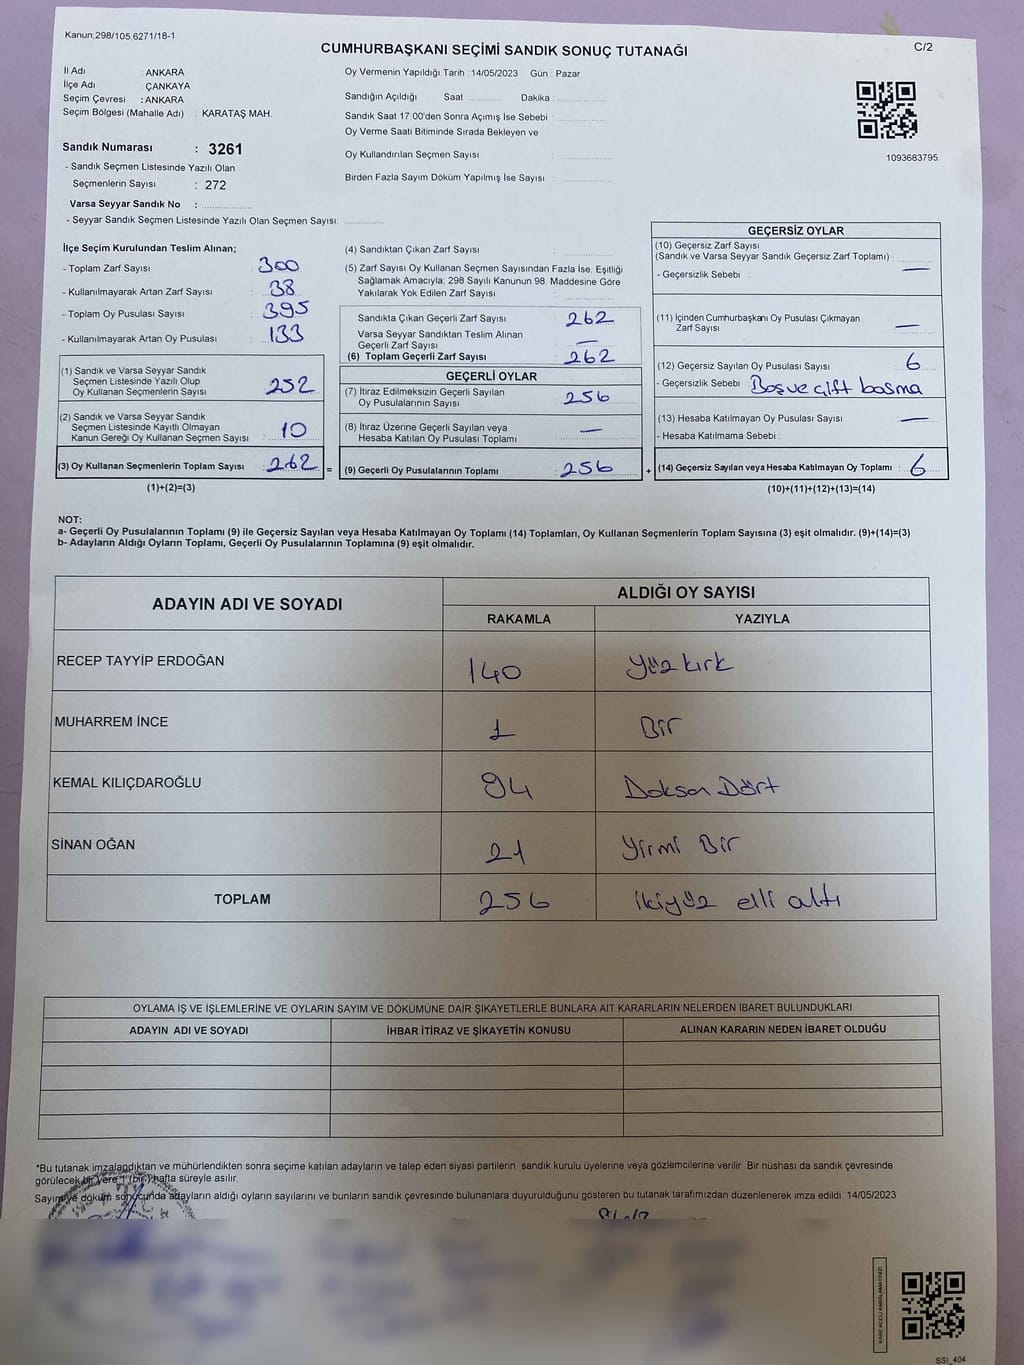 Kanun,298/105,6271/18-1
C/2
CUMHURBAŞKANI SEÇİMİ SANDIK SONUÇ TUTANAĞI
İl Adı : ANKARA
İlçe Adı : ÇANKAYA
Seçim Çevresi : ANKARA
Seçim Bölgesi (Mahalle Adı) : KARATAŞ MAH.
Oy Vermenin Yapıldığı Tarih : 14/05/2023 Gün : Pazar
Sandığın Açıldığı Saat ............ Dakika : ............
Sandık Saat 17:00'den Sonra Açımış İse Sebebi : ............
Oy Verme Saati Bitiminde Sırada Bekleyen ve
Oy Kullandırılan Seçmen Sayısı : ............
Birden Fazla Sayım Döküm Yapılmış İse Sayısı : ............
1093683795
Sandık Numarası : 3261
- Sandık Seçmen Listesinde Yazılı Olan
Seçmenlerin Sayısı : 272
Varsa Seyyar Sandık No : ............
- Seyyar Sandık Seçmen Listesinde Yazılı Olan Seçmen Sayısı: ............
İlçe Seçim Kurulundan Teslim Alınan;
- Toplam Zarf Sayısı : 300
- Kullanılmayarak Artan Zarf Sayısı : 38
- Toplam Oy Pusulası Sayısı : 395
- Kullanılmayarak Artan Oy Pusulası : 133
(1) Sandık ve Varsa Seyyar Sandık
Seçmen Listesinde Yazılı Olup
Oy Kullanan Seçmenlerin Sayısı : 252
(2) Sandık ve Varsa Seyyar Sandık
Seçmen Listesinde Kayıtlı Olmayan
Kanun Gereği Oy Kullanan Seçmen Sayısı : 10
(3) Oy Kullanan Seçmenlerin Toplam Sayısı : 262 =
(1)+(2)=(3)
(4) Sandıktan Çıkan Zarf Sayısı : ............
(5) Zarf Sayısı Oy Kullanan Seçmen Sayısından Fazla İse, Eşitliği
Sağlamak Amacıyla; 298 Sayılı Kanunun 98. Maddesine Göre
Yakılarak Yok Edilen Zarf Sayısı : ............
Sandıkta Çıkan Geçerli Zarf Sayısı : 262
Varsa Seyyar Sandıktan Teslim Alınan
Geçerli Zarf Sayısı : —
(6) Toplam Geçerli Zarf Sayısı : 262
GEÇERLİ OYLAR
(7) İtiraz Edilmeksizin Geçerli Sayılan
Oy Pusulalarının Sayısı : 256
(8) İtiraz Üzerine Geçerli Sayılan veya
Hesaba Katılan Oy Pusulası Toplamı : —
(9) Geçerli Oy Pusulalarının Toplamı : 256 +
GEÇERSİZ OYLAR
(10) Geçersiz Zarf Sayısı
(Sandık ve Varsa Seyyar Sandık Geçersiz Zarf Toplamı) : —
- Geçersizlik Sebebi :
(11) İçinden Cumhurbaşkanı Oy Pusulası Çıkmayan
Zarf Sayısı : —
(12) Geçersiz Sayılan Oy Pusulası Sayısı : 6
- Geçersizlik Sebebi : Boş ve çift basma
(13) Hesaba Katılmayan Oy Pusulası Sayısı : —
- Hesaba Katılmama Sebebi :
(14) Geçersiz Sayılan veya Hesaba Katılmayan Oy Toplamı : 6
(10)+(11)+(12)+(13)=(14)
NOT:
a- Geçerli Oy Pusulalarının Toplamı (9) ile Geçersiz Sayılan veya Hesaba Katılmayan Oy Toplamı (14) Toplamları, Oy Kullanan Seçmenlerin Toplam Sayısına (3) eşit olmalıdır. (9)+(14)=(3)
b- Adayların Aldığı Oyların Toplamı, Geçerli Oy Pusulalarının Toplamına (9) eşit olmalıdır.
ADAYIN ADI VE SOYADI ALDIĞI OY SAYISI
RAKAMLA YAZIYLA
RECEP TAYYİP ERDOĞAN 140 Yüz kırk
MUHARREM İNCE 1 Bir
KEMAL KILIÇDAROĞLU 94 Doksan Dört
SİNAN OĞAN 21 Yirmi Bir
TOPLAM 256 ikiyüz elli altı
OYLAMA İŞ VE İŞLEMLERİNE VE OYLARIN SAYIM VE DÖKÜMÜNE DAİR ŞİKAYETLERLE BUNLARA AİT KARARLARIN NELERDEN İBARET BULUNDUKLARI
ADAYIN ADI VE SOYADI İHBAR İTİRAZ VE ŞİKAYETİN KONUSU ALINAN KARARIN NEDEN İBARET OLDUĞU
*Bu tutanak imzalandıktan ve mühürlendikten sonra seçime katılan adayların ve talep eden siyasi partilerin sandık kurulu üyelerine veya gözlemcilerine verilir. Bir nüshası da sandık çevresinde
görülecek bir yere 1 (bir) hafta süreyle asılır.
Sayım ve döküm sonucunda adayların aldığı oyların sayılarını ve bunların sandık çevresinde bulunanlara duyurulduğunu gösteren bu tutanak tarafımızdan düzenlenerek imza edildi. 14/05/2023
KARE KODU KARALAMAYINIZ!
SSI_404